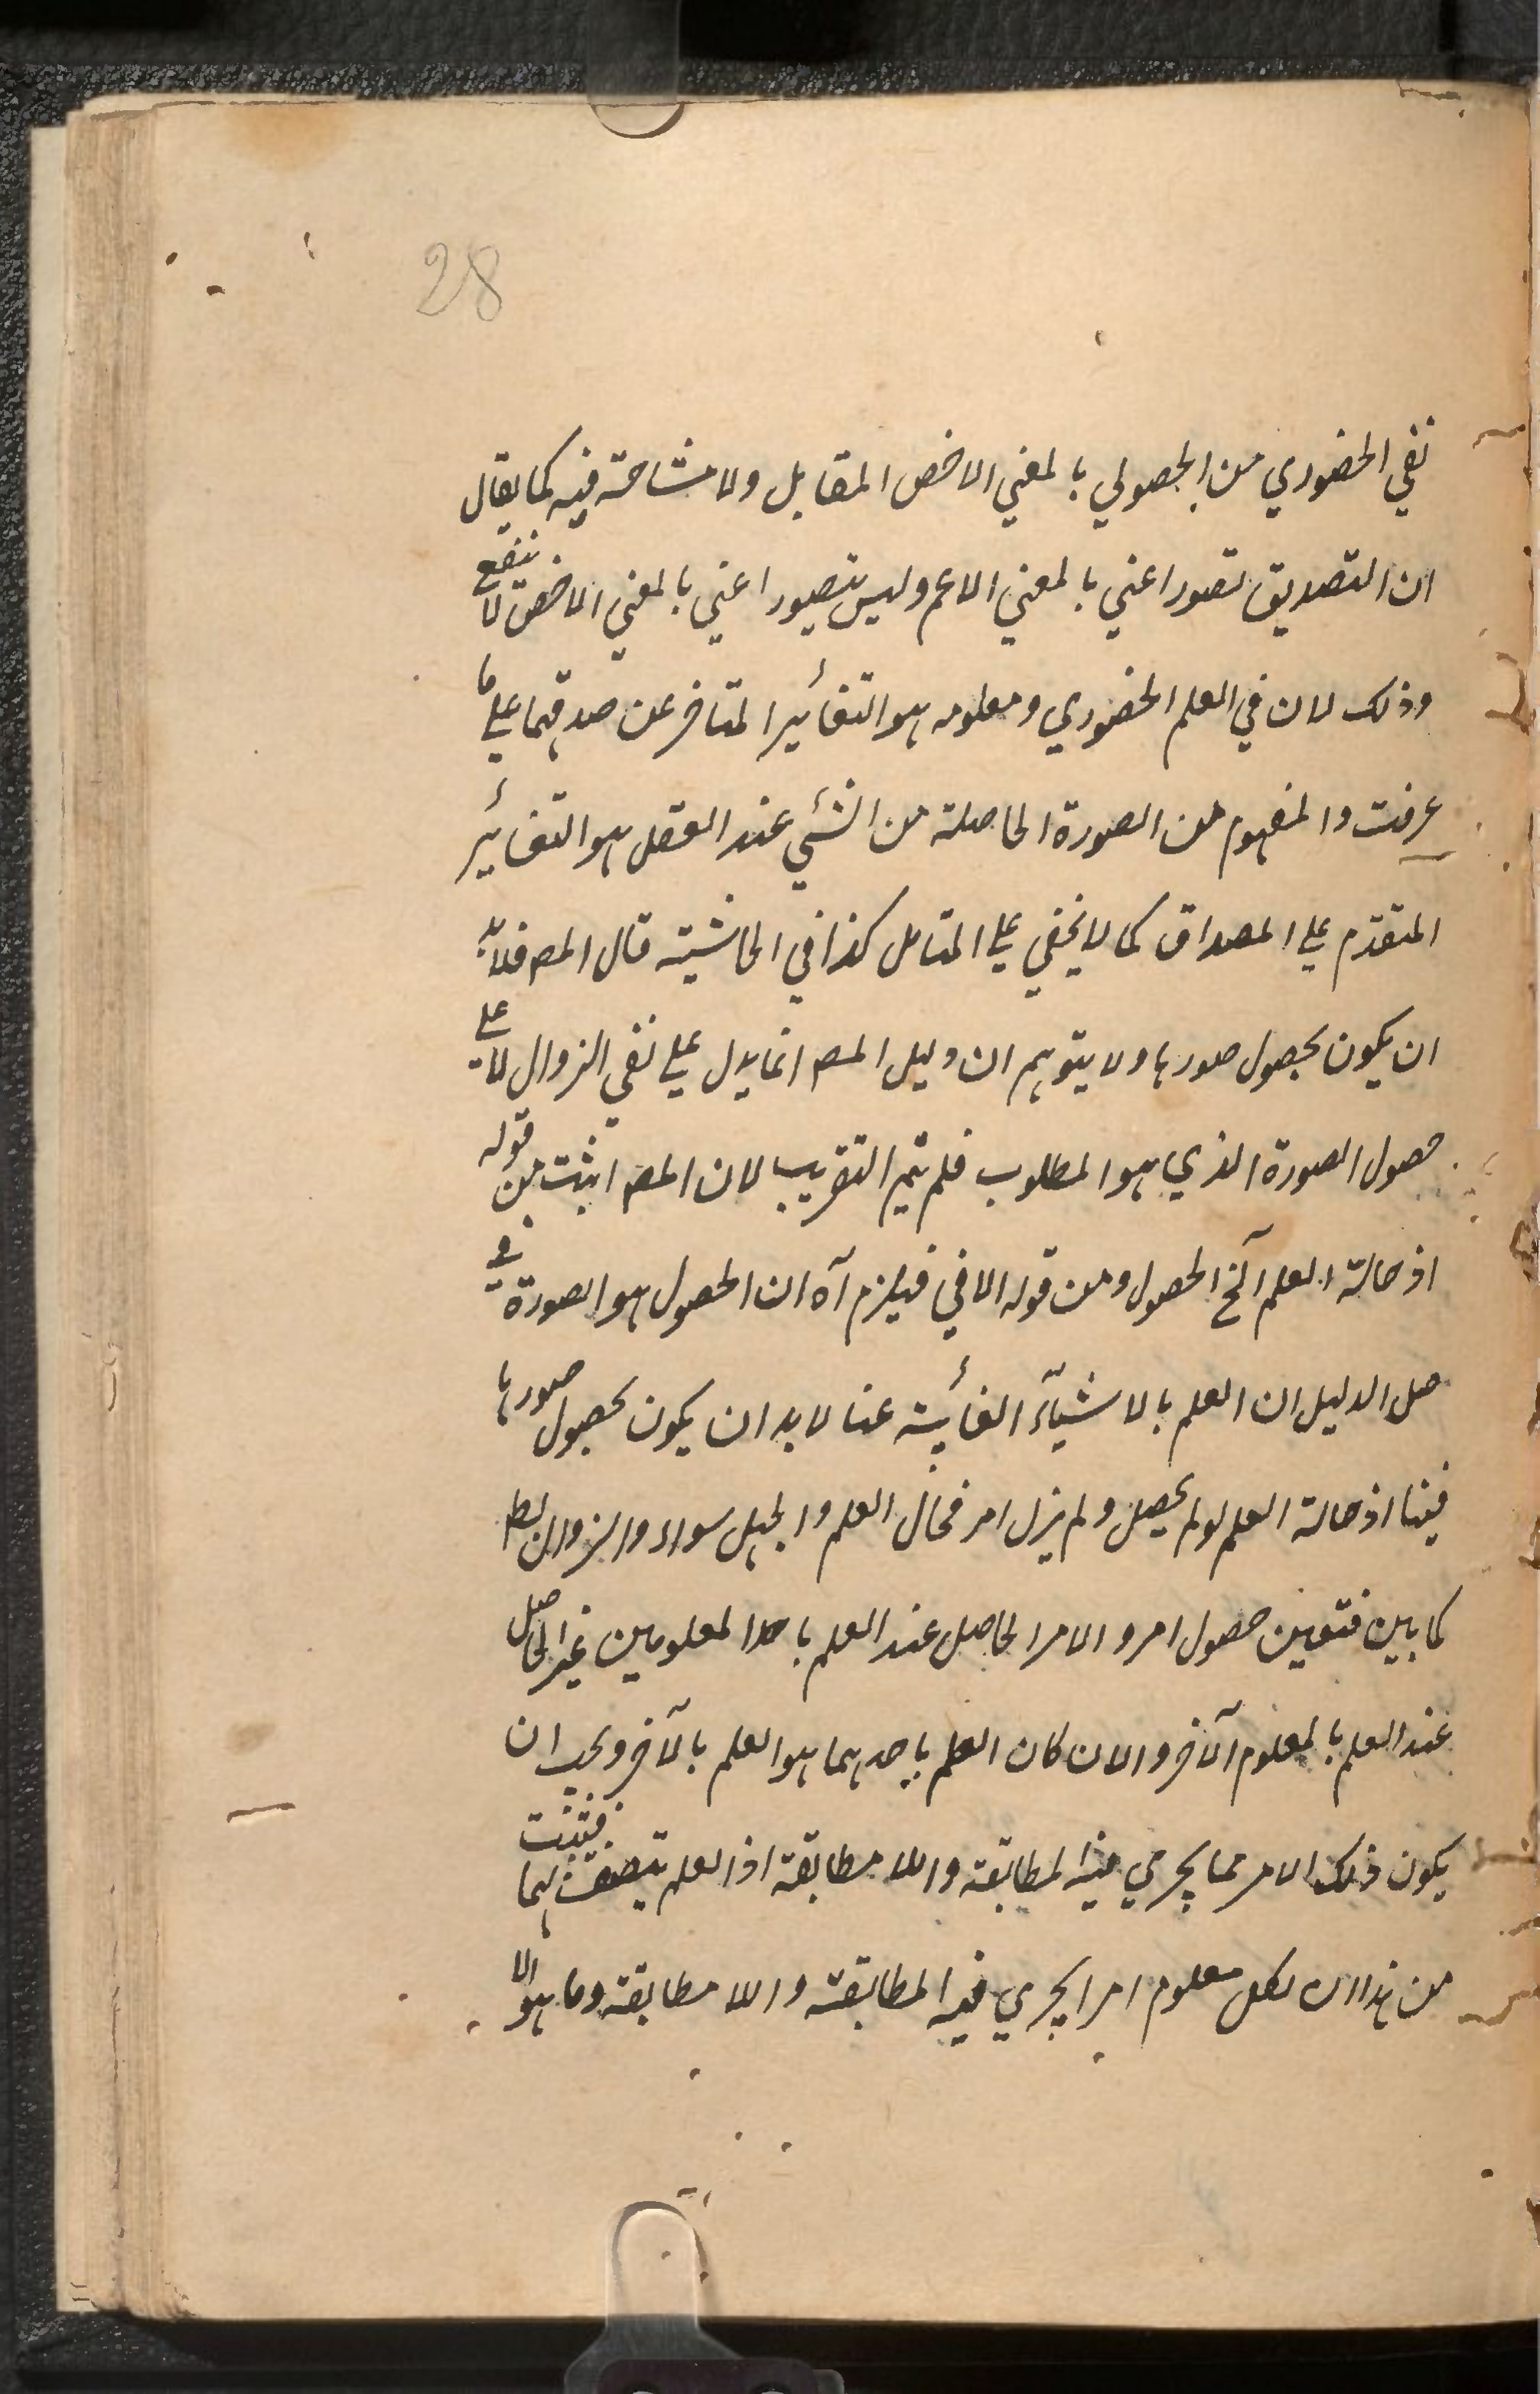 28
نفي الحضوري من الحصولي بالمعني الاخص المقابل ولا مشاحة فيه كما يقال
ان التصديق تصور اعني بالمعني الاعم وليس بتصور اعني بالمعني الاخص لا ينفع
وذلك لان في العلم الحضوري ومعلومه هو التغائير المتاخر عن صدقهما علي ما
عرفت والمفهوم من الصورة الحاصلة من الشئي عند العقل هو التغائير
المتقدم علي المصداق كما لا يخفي علي المتامل كذا في الحاشية قال المصـ فلابد
ان يكون بحصول صورها ولا يتوهم ان دليل المصـ انما يدل علي نفي الزوال لا علي
حصول الصورة الذي هو المطلوب فلم يتم التقريب لان المصـ اثبت من قوله
اذ حالة العلم آلخ الحصول ومن قوله الافي فيلزم آه ان الحصول هو الصورة في
صل الدليل ان العلم بالاشيآء الغائبة عنا لا بد ان يكون بحصول صورها
فينا اذ حالة العلم لو لم يحصل ولم يزل امر فحال العلم والجهل سواء والزوال بط
كما بين فتعين حصول امر والامر الحاصل عند العلم باحد المعلومين غير الحاصل
عند العلم بالمعلوم الآخر والا لان كان العلم باحدهما هو العلم بالآخر ويجب ان
يكون ذلك الامر مما يجري فيه المطابقة واللا مطابقة اذ العلم يتصف بهما فيثبت
من هذا ان لكل معلوم امرا يجري فيه المطابقة واللا مطابقة وما هو الا